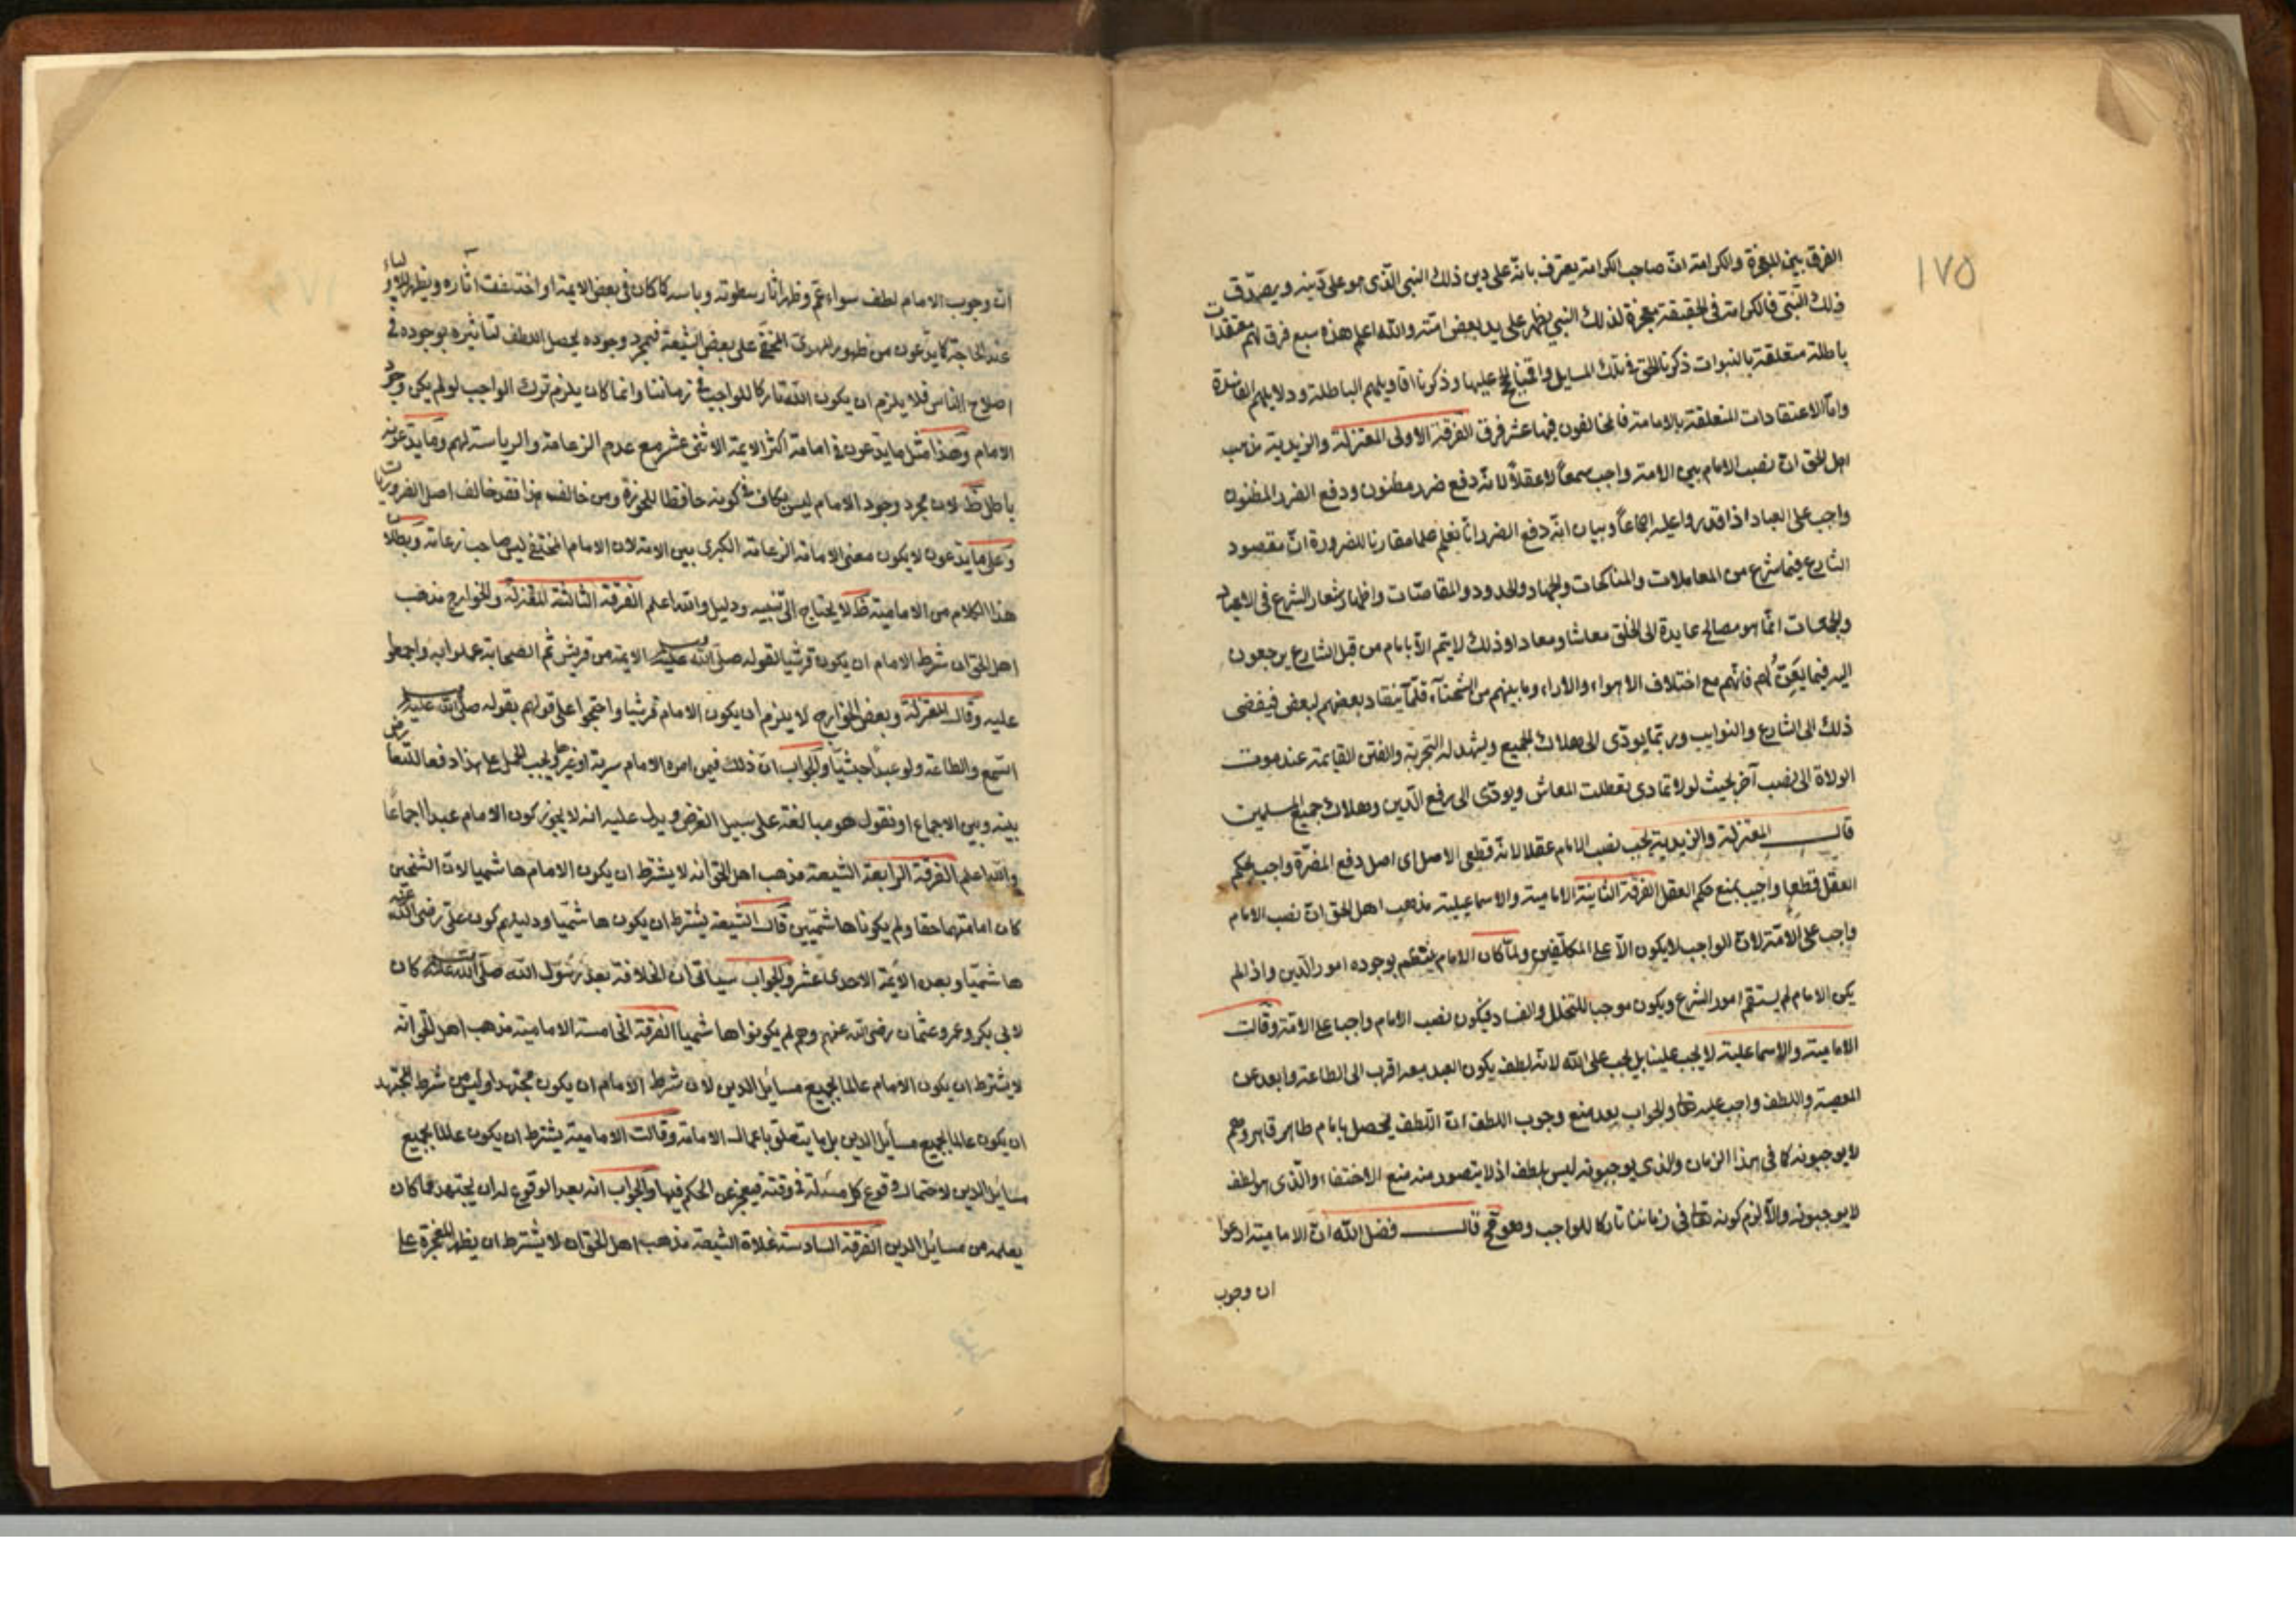 ١٧٥
الفرق بين المعجزة والكرامة انّ صاحب الكرامة يعترف بانّه على دين ذلك النبي الّذى هو على دينه ويصدّق
ذلك النّبىّ فالكرامة فى الحقيقة معجزة لذلك النبي يظهر على يد بعض امّته والله اعلم هذه سبع فرق لهم معتقدات
باطلة متعلقة بالنبوات ذكرنا الحق فى تلك المسايل واقمنا الحج عليها وذكرنا اقاويلهم الباطلة ودلايلهم الفاسدة
وامّا الاعتقادات المتعلقة بالامامة فالمخالفون فيها عشر فرق الفرقة الاولى المعتزلة والزيدية مذهب
اهل الحق انّ نصب الامام بين الامة واجب سمعاً لا عقلاً لانّه دفع ضرر مظنون ودفع الضرر المظنون
واجب على العباد اذا قدروا عليه اجماعاً وبيان انّه دفع الضرر انّا نعلم علما مقارنا للضرورة انّ مقصود
الشارع فيما شرع من المعاملات والمناكحات والجهاد والحدود والمقاصّات واظهار شعار الشرع فى الاعياد
والجمعات انّما هو مصالح عايدة الى الخلق معاشا ومعادا وذلك لا يتم الاّ بامام من قبل الشارع يرجعون
اليه فيما يَعِنُّ لهم فانّهم مع اختلاف الاهواء والاراء وما بينهم من الشحنآء قلّما ينقاد بعضهم لبعض فيفضى
ذلك الى الشارع والنوايب وربّما يودّى الى هلاك الجميع ويشهد له التجربة والفتن القايمة عند موت
الولاة الى نصب آخر بحيث لو لا تمادى تعطلت المعاش ويودّى الى رفع الدّين وهلاك جميع المسلمين
قال المعتزلة والزيدية يجب نصب الامام عقلا لانّه قطعى الاصل اى اصل دفع المضرّة واجب بحكم
العقل قطعا واجيب بمنع حكم العقل الفرقة الثانية الامامية والاسماعيلية مذهب اهل الحق انّ نصب الامام
واجب على الامّة لانّ الواجب لا يكون الاّ على المكلّفين ولمّا كان الامام ينتظم بوجوده امور الدّين واذا لم
يكن الامام لم يستقم امور الشرع ويكون موجب للتخلل والفساد فيكون نصب الامام واجبا على الامّة وقالت
الامامية والاسماعلية لا يجب علينا بل يجب على الله لانّه لطف يكون العبد معه اقرب الى الطاعة وابعد عن
المعصية واللطف واجب عليه تعا والجواب بعد منع وجوب اللطف انّ اللّطف يحصل بامام ظاهر قاهر وهم
لا يوجبونه كما فى هذا الزمان والذى يوجبونه ليس بلطف اذ لا يتصور منه منع الاختفاء والّذى هو لطف
لا يوجبونه والاّ لزم كونه تعا فى زماننا تاركا للواجب وهو قبح قال فضل الله انّ الامامية ادعوا
ان وجوب
انّ وجوب الامام لطف سواء عمّ وظهر اثار سطوته وباسه كما كان فى بعض الايمة او اختلفت اثاره ويظهر للاولياء
عند الحاجة كما يدّعون من ظهور المهدىّ المختفى على بعض الشيعة فبمجرد وجوده يحصل اللطف لتاثيره بوجوده فى
اصلاح الناس فلا يلزم ان يكون الله تاركا للواجب فى زماننا وانما كان يلزم ترك الواجب لو لم يكن وجود
الامام وهذا مثل ما يدّعون فى امامة اكثر الايمة الاثنى عشر مع عدم الزعامة والرياسة لهم وما يدّعونه
باطل ظ لان مجرد وجود الامام ليس بكاف فى كونه حافظا للحوزة ومن خالف هذا فقد خالف اصل الضروريات
وعلى ما يدّعون لا يكون معنى الامامة الزعامة الكبرى بين الامة لان الامام المختفى ليس صاحب زعامة وبطلان
هذا الكلام من الامامية ظ لا يحتاج الى تنبيه ودليل والله اعلم الفرقة الثالثة المعتزلة والخوارج مذهب
اهل الحق ان شرط الامام ان يكون قرشيا لقوله صلّى الله عليه وسلم الايمة من قريش ثم الصحابة عملوا به واجمعوا
عليه وقال المعتزلة وبعض الخوارج لا يلزم ان يكون الامام قرشيا واحتجوا على قولهم بقوله صلى الله عليه وسلم
السّمع والطاعة ولو عبداً حبشيّا والجواب انّ ذلك فيمن امره الامام سرية او غيرها ويجب الحمل على هذا دفعا للتعارض
بينه وبين الاجماع او نقول هو مبالغة على سبيل الفرض ويدل عليه انه لا يجوز كون الامام عبدا اجماعاً
والله اعلم الفرقة الرابعة الشيعة مذهب اهل الحق انه لا يشترط ان يكون الامام هاشميا لانّ الشيخين
كان امامتهما حقا ولم يكونا هاشميين قال الشيعة يشترط ان يكون هاشميّا ودليلهم كون علىّ رضى الله عنه
هاشميّا وبعده الايمّة الاحدى عشر والجواب سياتى ان الخلافة بعد رسول الله صلّى الله عليه كان
لابى بكر وعمر وعثمان رضى الله عنهم وهم لم يكونوا هاشميا الفرقة الخامسة الامامية مذهب اهل الحق انه
لا يشترط ان يكون الامام عالما بجميع مسايل الدين لان شرط الامام ان يكون مجتهدا وليس من شرط المجتهد
ان يكون عالما بجميع مسايل الدين بل ما يتعلق باعمال الامامة وقالت الامامية يشترط ان يكون عالما بجميع
مسايل الدين لاحتمال وقوع كل مسئلة فى وقته فيعجز عن الحكم فيها والجواب انه بعد الوقوع له ان يجتهد عما كان
يعلمه من مسايل الدين الفرقة السادسة غلاة الشيعة مذهب اهل الحق ان لا يشترط ان يظهر المعجزة على